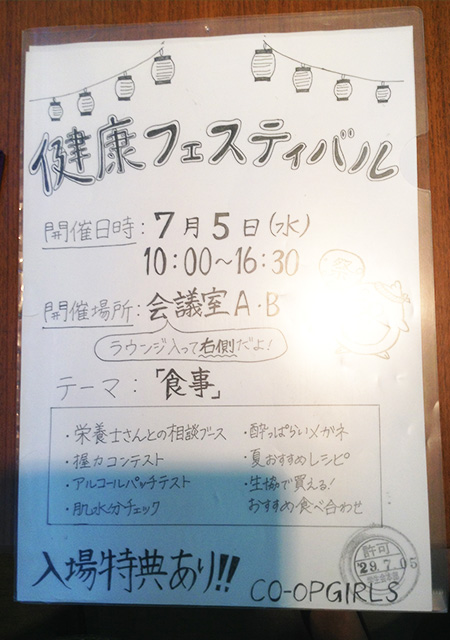 健康フェスティバル
開催日時：7月5日(水)
10:00～16:30
開催場所：会議室A・B
ラウンジ入って右側だよ！
テーマ：「食事」
・栄養士さんとの相談ブース
・握力コンテスト
・アルコールパッチテスト
・肌水分チェック
・酔っぱらいメガネ
・夏おすすめレシピ
・生協で買える！
おすすめ食べ合わせ
入場特典あり!!
CO-OPGIRLS
許可
29.7.05